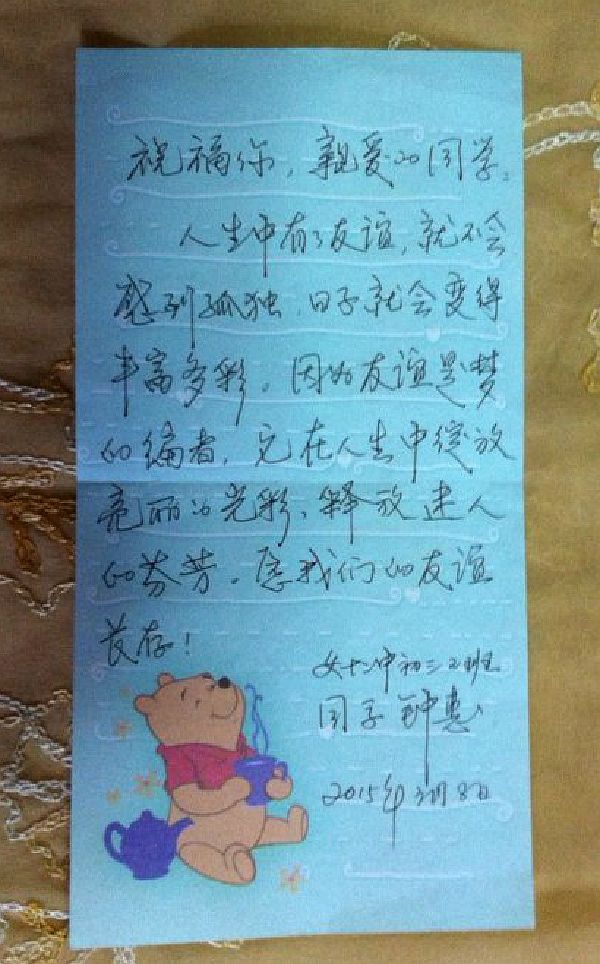 祝福你，亲爱的同学。
人生中有了友谊，就不会
感到孤独，日子就会变得
丰富多彩。因为友谊是梦
的编者，它在人生中绽放
亮丽的光彩，释放迷人
的芬芳。愿我们的友谊
长存！
女十二中初三2班
同学 钟惠
2015年3月8日